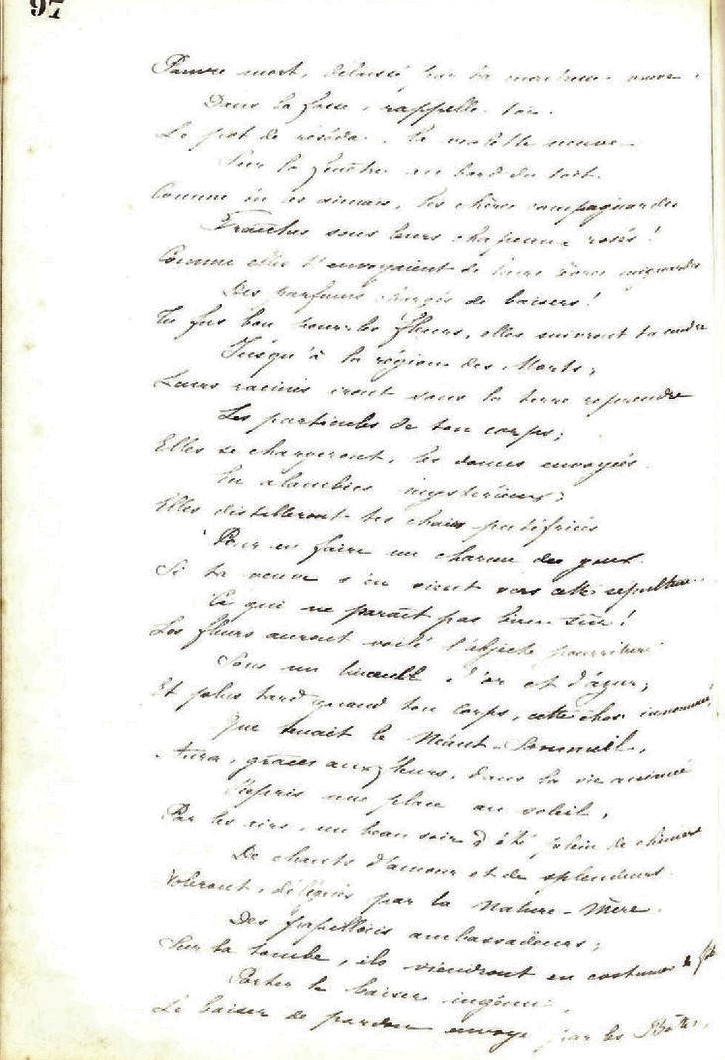 97
Pauvre mort, délaissé par ta veuve
Dans la fosse, rappelle-toi
Le pot de réséda, la violette neuve
Sur la fenêtre au bord du toit.
Comme tu les aimais, tes chères compagnardes
Fraîches sous leurs chapeaux rosés!
Comme elles t'envoyaient de leurs lèvres mignardes
Des parfums chargés de baisers!
Tu fus bon pour les fleurs, elles suivront ta cendre
Jusqu'à la région des Morts;
Leurs racines iront sous la terre reprendre
Les particules de ton corps;
Elles se changeront, les douces envoyées
En alambics mystérieux;
Elles distilleront tes chairs putréfiées
Pour en faire un charme des yeux.
Si ta veuve s'en vient vers cette sépulture
Ce qui ne paraît pas bien sûr!
Les fleurs auront voilé l'abjecte pourriture
Sous un linceul d'or et d'azur;
Et plus tard quand ton corps, cette chose innommée
Que tenait le Néant-Sommeil,
Aura, grâces aux fleurs, dans la vie animée
Repris une place au soleil,
Par les airs, un beau soir d'été plein de chimères
De chants d'amour et de splendeurs
Voleront, délégués par la Nature-Mère
Des papillons ambassadeurs;
Sur ta tombe, ils viendront en costumes de fête
Porter le baiser ingénu,
Le baiser de pardon envoyé par les Bêtes,